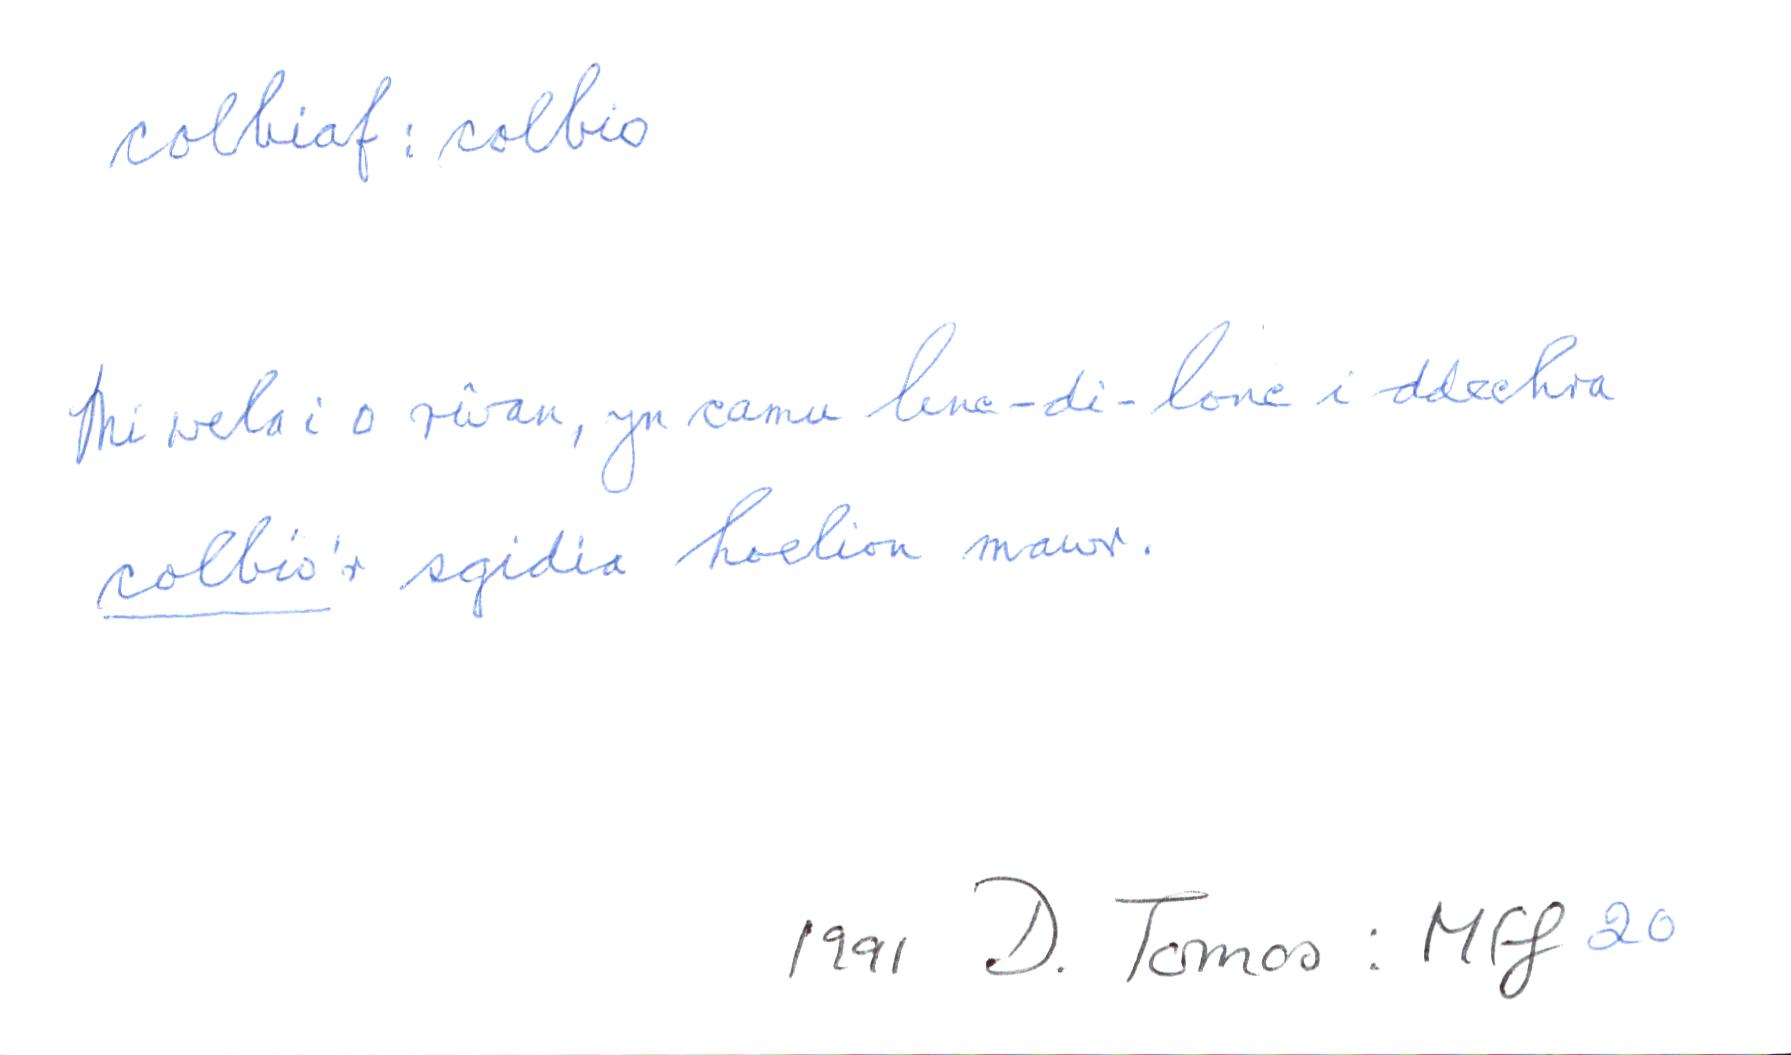 colbiaf : colbio
Mi wela i o rŵan, yn camu linc-di-lonc i ddechra
colbio'r sgidia hoelion mawr.
1991 D. Tomos : MFf 20